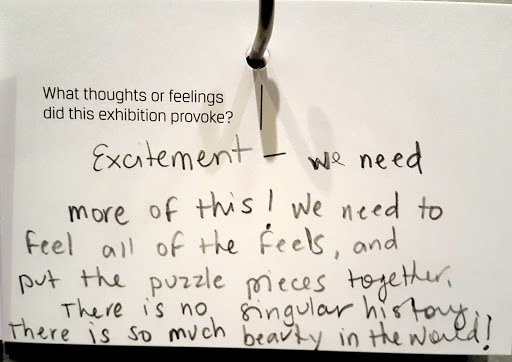 What thoughts or feelings
did this exhibition provoke?
Excitement – we need
more of this! We need to
feel all of the feels, and
put the puzzle pieces together.
There is no singular history,
there is so much beauty in the world!